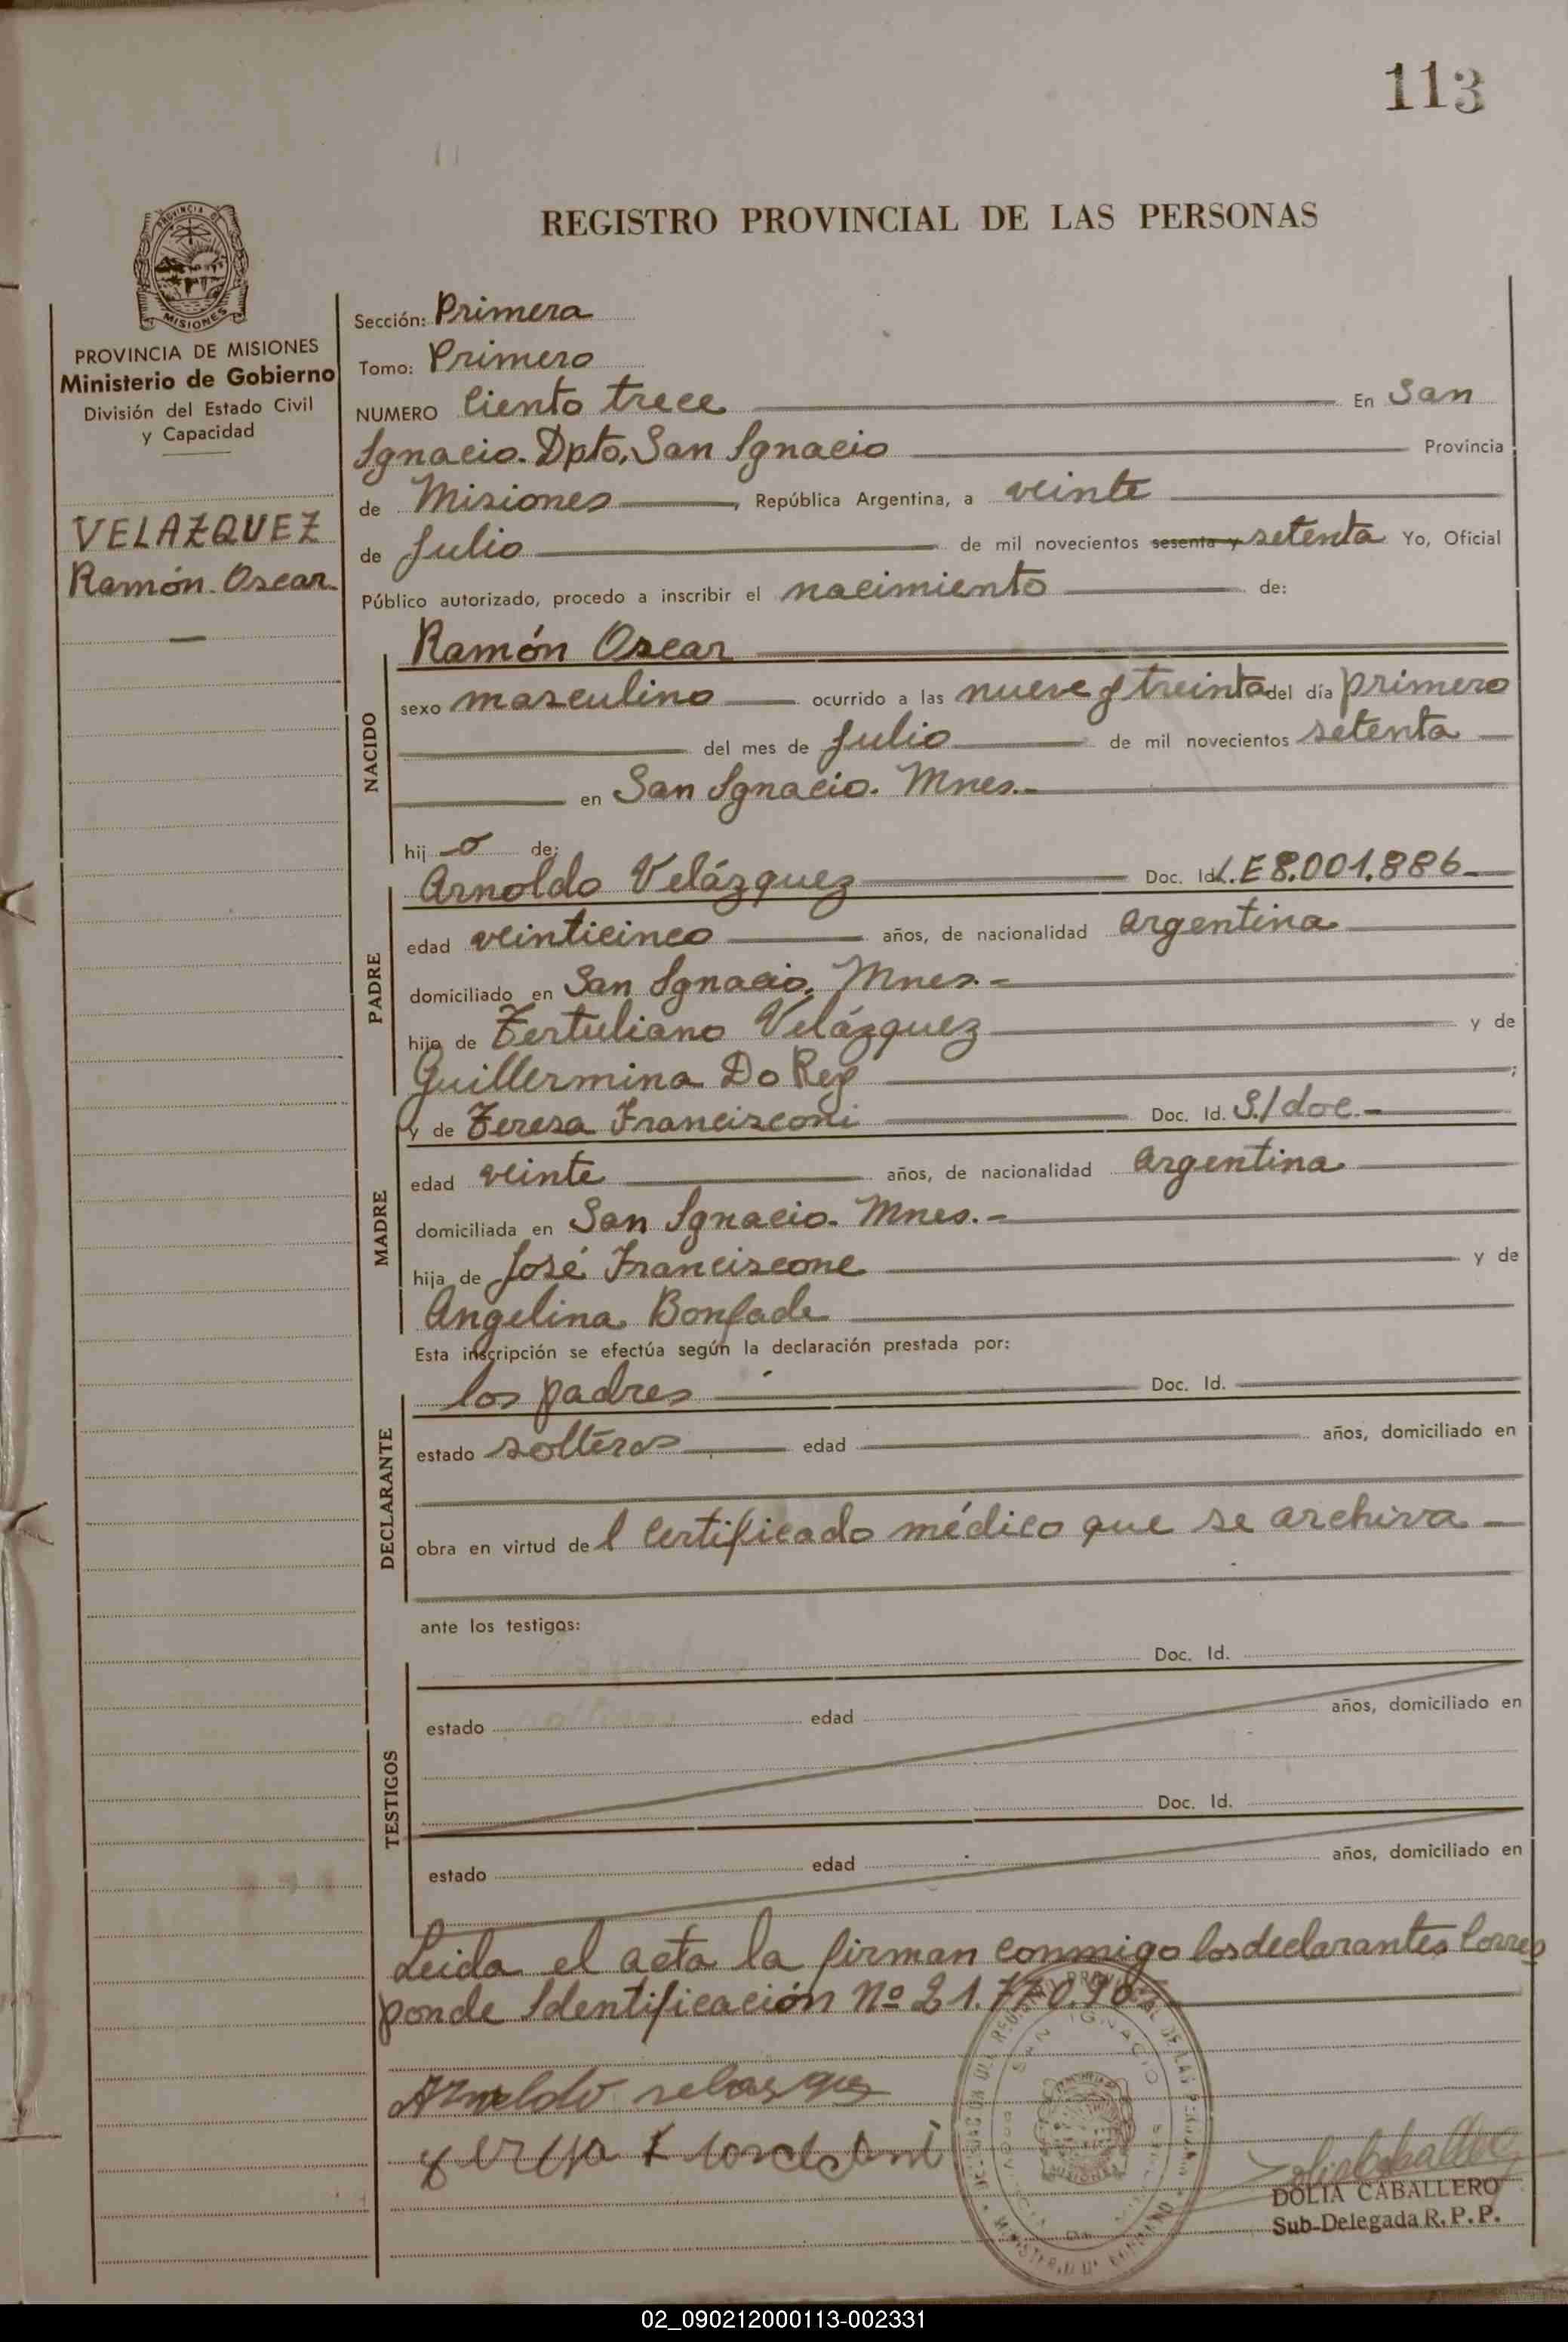 113
REGISTRO PROVINCIAL DE LAS PERSONAS
PROVINCIA DE
MISIONES
PROVINCIA DE MISIONES
Ministerio de Gobierno
División del Estado Civil
y Capacidad
VELAZQUEZ
Ramón Oscar
Sección: Primera
Tomo: Primero
NUMERO Ciento trece En San
Ignacio. Dpto. San Ignacio Provincia
de Misiones, República Argentina, a veinte
de Julio de mil novecientos sesenta y setenta Yo, Oficial
Público autorizado, procedo a inscribir el nacimiento de:
NACIDO
Ramón Oscar
sexo masculino ocurrido a las nueve y treinta del día primero
del mes de Julio de mil novecientos setenta
en San Ignacio. Mnes.-
hij o de:
PADRE
Arnoldo Velázquez Doc. Id. L.E 8.001.886
edad veinticinco años, de nacionalidad argentina
domiciliado en San Ignacio, Mnes.-
hijo de Tertuliano Velázquez y de
Guillermina Do Rey ;
MADRE
y de Teresa Francisconi Doc. Id. S./doc.-
edad veinte años, de nacionalidad argentina
domiciliada en San Ignacio. Mnes.-
hija de José Franciscone y de
Angelina Bonfade
Esta inscripción se efectúa según la declaración prestada por:
DECLARANTE
los padres Doc. Id.
estado solteros edad años, domiciliado en
obra en virtud de l certificado médico que se archiva
ante los testigos:
TESTIGOS
Doc. Id.
estado edad años, domiciliado en
Doc. Id.
estado edad años, domiciliado en
Leida el acta la firman conmigo los declarantes Corres
ponde Identificación Nº 21.770.
SAN IGNACIO
Arnoldo
DOLIA CABALLERO
Sub-Delegada R. P. P.
02_090212000113-002331